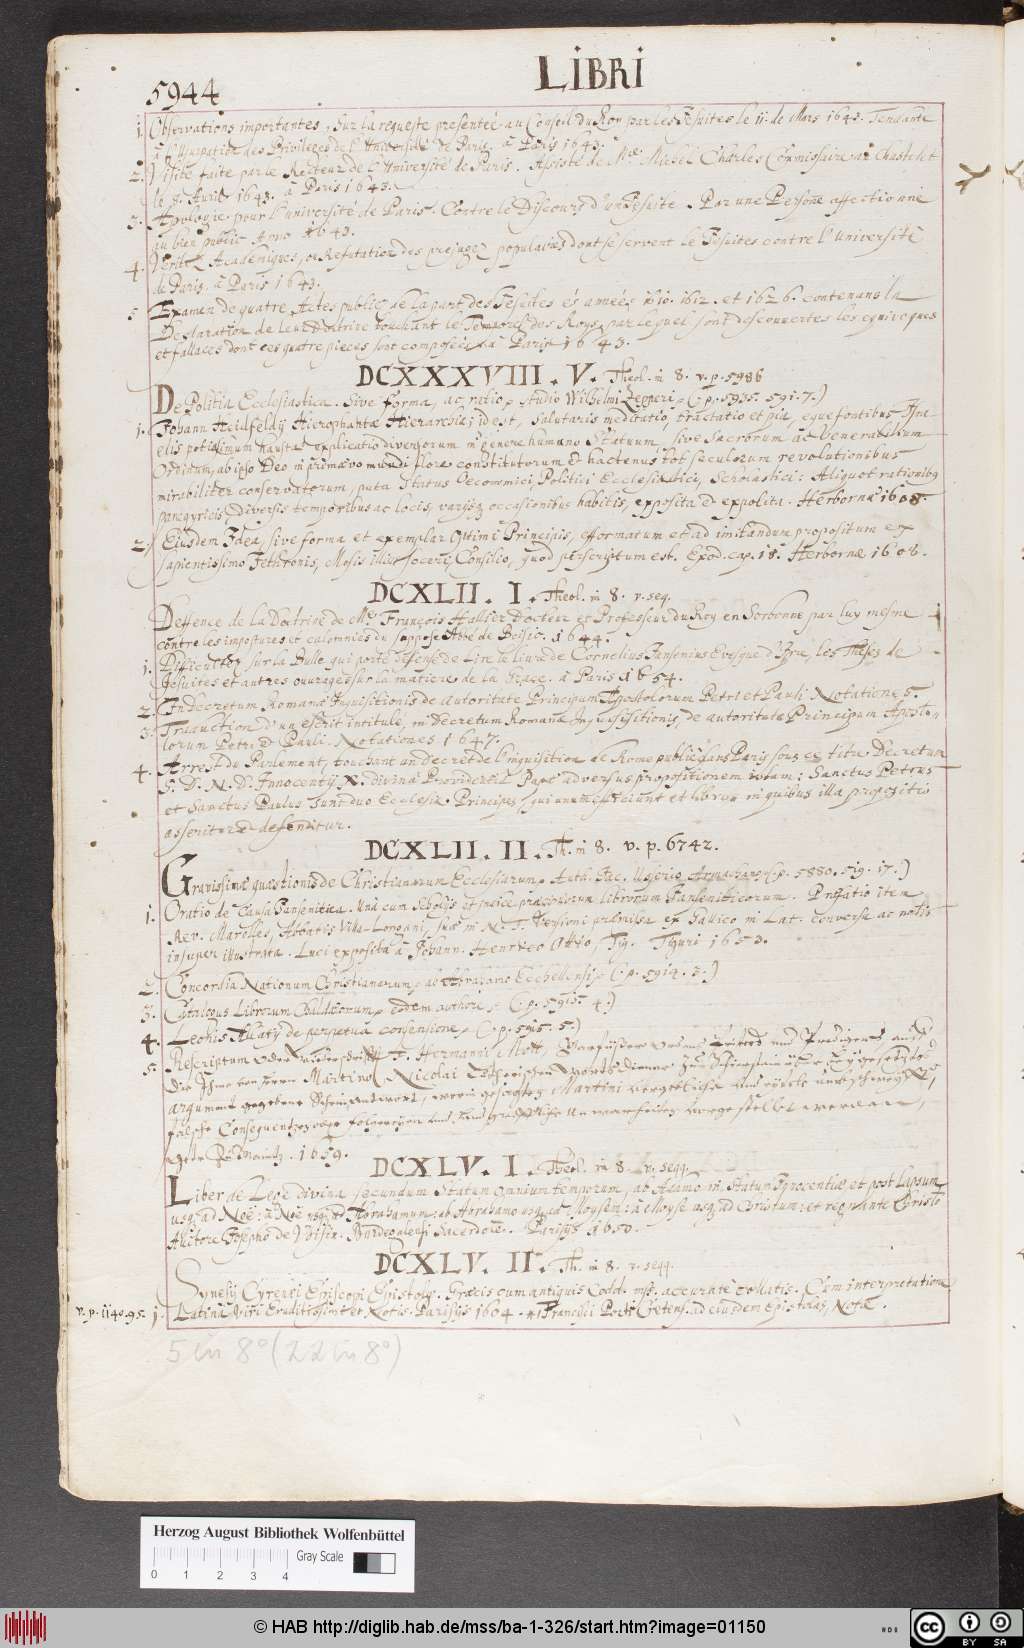 5944
LIBRI
1. Observations importantes, Sur la requeste presenteé au Conseil du Roy par les Jesuites le 11. de Mars 1643. Tendante
à l'Usurpation des Privileges de l'Université de Paris. à Paris 1643.
2. Visite faite par le Recteur de l'Université de Paris. Assisté de Mᵉ. Charles Commissaire au Chastelet
le 9. Avril 1643. à Paris 1643.
3. Apologie pour l'université de Paris. Contre le Discours d'un Jesuite. Par une Persoñe affectionneé
au bien public Anno 1643.
4. Veritez Academiques, ou Refutation des prejugez populaires dont se servent le Jesuites contre l'Université
de Paris. à Paris 1643.
5. Examen de quatre Actes publiez de la part des Jesuites és anneés 1610. 1612. et 1626. contenans la
Declaration de leur Doctrine touchant le Temporel des Roys, par lequel sont descouvertes les equivoques
et fallaces dont ces quatre pieces sont composeés à Paris 1643.
DCXXXVIII. V. Theol. in 8. v. p. 5986
De Politia Ecclesiastica. Sive forma, ac ratio, studio Wilhelmi Zepperi (. p. 5935. 591. 7.)
1. Johann Heidfeldij Hierophantæ Hierarchia; id est, Salutaris meditatio, tractatio et pia, eque fontibus Isra
elis potissimum hausta explicatio diversorum in genere humano Statuum, sive Sacrorum ac Venerabilium
Ordinum, ab ipso Deo in primævo mundi flore constitutorum & hactenus tot seculorum revolutionibus
mirabiliter conservatorum, puta Status Oeconomici, Politici Ecclesiastici, Scholastici: Aliquot rationibus
panegyricis, diversis temporibus ac locis, varijsq occasionibus habitis, exposita & expolita. Herbornæ 1608.
2. Eiusdem Idea, sive forma et exemplar Optimi Principis, efformatum et ad imitandum propositum ex
sapientissimo Jethronis, Mosis illius soceri, Consilio, quod perscriptum est. Exod. cap. 18. Herbornæ 1608.
DCXLII. I. Theol. in 8. v. seq.
Deffence de la Doctrine de Mʳ. François Hallier Docteur et Professeur du Roy en Sorbonne par luy mesme
contre les impostures et calomnies du supposé Abbé de Boisic. 1644.
1. Difficultez sur la Bulle qui porte defense de Lire le livre de Cornelius Jansenius Evesque d'Ipre, les Theses de
Jesuites et autres ouvrages sur la matiere de la Grace. à Paris 1654.
2. In decretum Romanæ Inquisitionis de autoritate Principum Apostolorum Petri et Pauli Notationes.
3. Traduction d'un escrit intitulé, in Decretum Romanæ Inquisitionis, de autoritate Principum Aposto-
lorum Petri & Pauli. Notationes 1647.
4. Arrest de Parlement, touchant un decret de l'inquisition de Rome publié dans Paris sous ce titre Decretum
S. D. N. D. Innocentij X. divina Providentia Papæ adversus propositionem istam: Sanctus Petrus
et Sanctus Paulus sunt duo Ecclesiæ Principes, qui unum efficiunt et libros in quibus illa propositio
asseritur & defenditur.
DCXLII. II. Th. in 8. v. p. 6742.
Gravissimæ quæstionis de Christianarum Ecclesiarum Auth. Jac. Usserio Armachano (. p. 5880. 519. 17.)
1. Oratio de Causa Jansenitica. Unà cum Scholijs et indice præcipuorum librorum Janseniticorum. Præfatio item
Rev. Marolles, Abbatis Villa-Longani, suæ in N. T. Versioni præmissa ex Gallico in Lat. conversa ac notis
insuper illustrata. Luci exposita à Johann. Henrico Ottio, Tig. Tiguri 1653.
2. Concordia Nationum Christianarum, ab Abrahamo Ecchellensi (. p. 5914. 3.)
3. Catalogus Librorum Chaldæorum, eodem authore (. p. 5915. 4.)
4. Leonis Allatij de perpetua consensione (. p. 5915. 5.)
5. Rescriptum oder Wiederschrifft F. Hermanni Mott,
Martino Nicolai
argument gegebene Martini
falsche Consequentzen
1659.
DCXLV. I. Theol. in 8. v. seqq.
Liber de Lege divina secundum Statum Omnium temporum, ab Adamo in Statum Innocentiæ et post Lapsum
usq ad Noë: à Noë usq ad Abrahamum: ab Abrahamo usq ad Moysem: à Moyse usq ad Christum: et regnante Christo
Auctore Josepho de Voisin. Burdegalensi Sacerdote. Parisijs 1650.
DCXLV. II. Th. in 8. v. seqq.
Synesij Cyrenei Episcopi Epistolæ. Græcis cum antiquis Codd. mss. accurate collatis. Cum interpretatione
v. p. 1140. 95. 1. Latina Viri Eruditissimi et Notis. Parisijs 1604. Francisci Porti Cretens. ad eiusdem Epistolas, Notæ.
5 in 8° (22 in 8°)
Herzog August Bibliothek Wolfenbüttel
Gray Scale
0 1 2 3 4
© HAB http://diglib.hab.de/mss/ba-1-326/start.htm?image=01150
cc BY SA